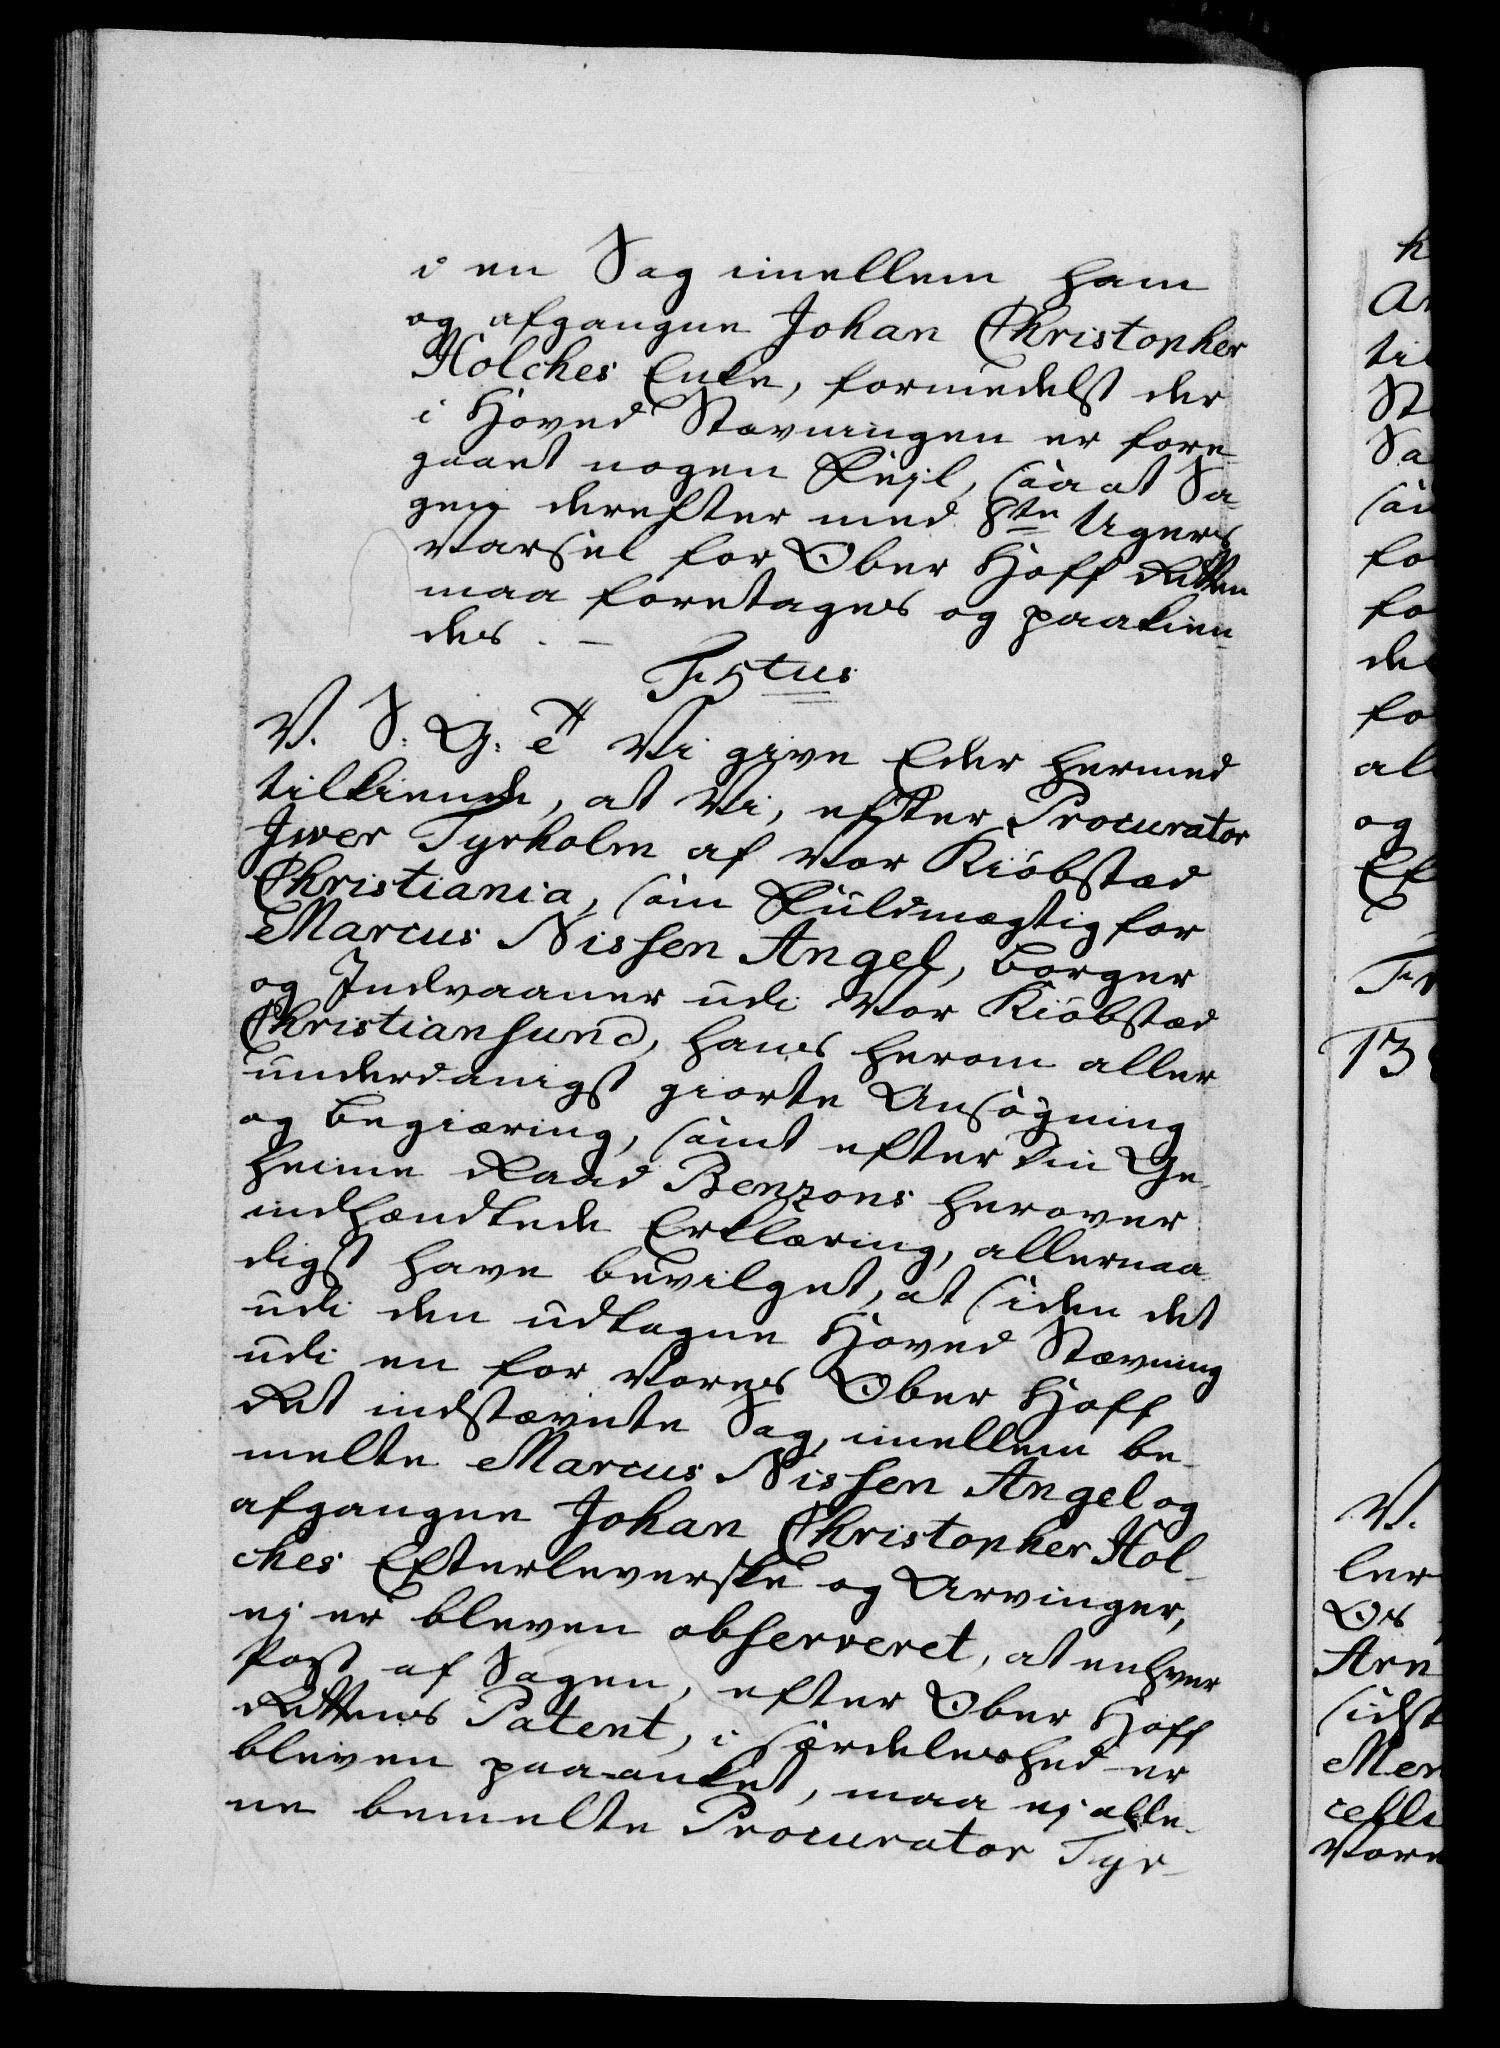 i en Sag imellem ham
og afgangne Johan Christopher
Holches Enke, formedelst der
i Hoved Stævningen er fore-
gaaet nogen Feyl, saa at Sa-
gen derefter med 8te Ugers
Varsel for Ober Hoff Retten
maa foretages og paakien-
des. –
V. S: G: Vi give Eder hermed
tilkiende, at Vi, efter Procurator
Iwer Tyrholm af Vor Kiöbstæd
Christiania, som Fuldmægtig for
Marcus Nissen Angel, borger
og Indvaaner udi Vor Kiöbstæd
Christiansund, hans herom aller
underdanigst giorte Ansögning
og begiæring, samt efter Din Ge-
heime Raad Benzons herover
indhændtede Erklæring, allernaa-
digst have bevilget, at siden det
udi den udtagne Hoved Stævning
udi en for Vores Ober Hoff
Ret indstævnte Sag, imellem be-
melte Marcus Nissen Angel og
afgangne Johan Christopher Hol-
ches Efterleverske og Arvinger,
ej er bleven observeret, at enhver
Post af Sagen, efter Ober Hoff
Rettens Patent, i særdeleshed er
bleven paa-anket, maa ej alle-
ne bemelte Procurator Tyr-